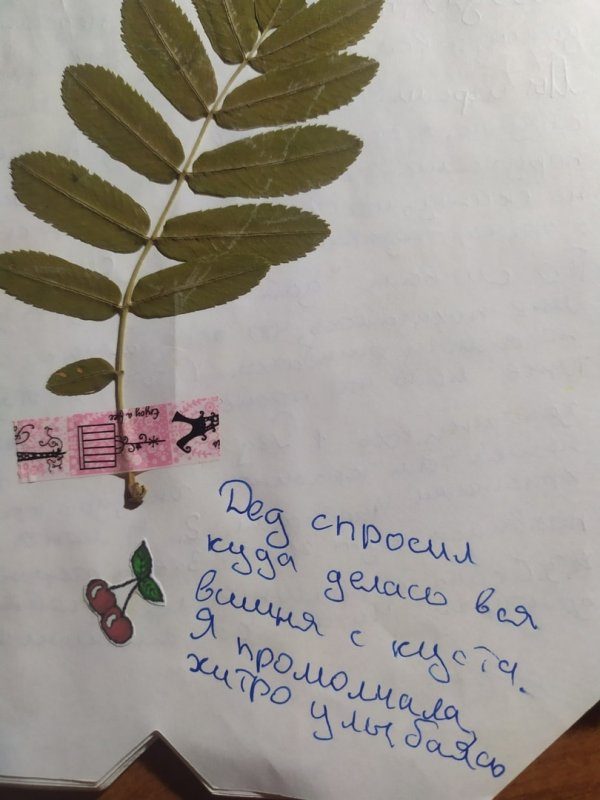 Enjoy a
Дед спросил
куда делась вся
вишня с куста.
Я промолчала,
хитро улыбаясь